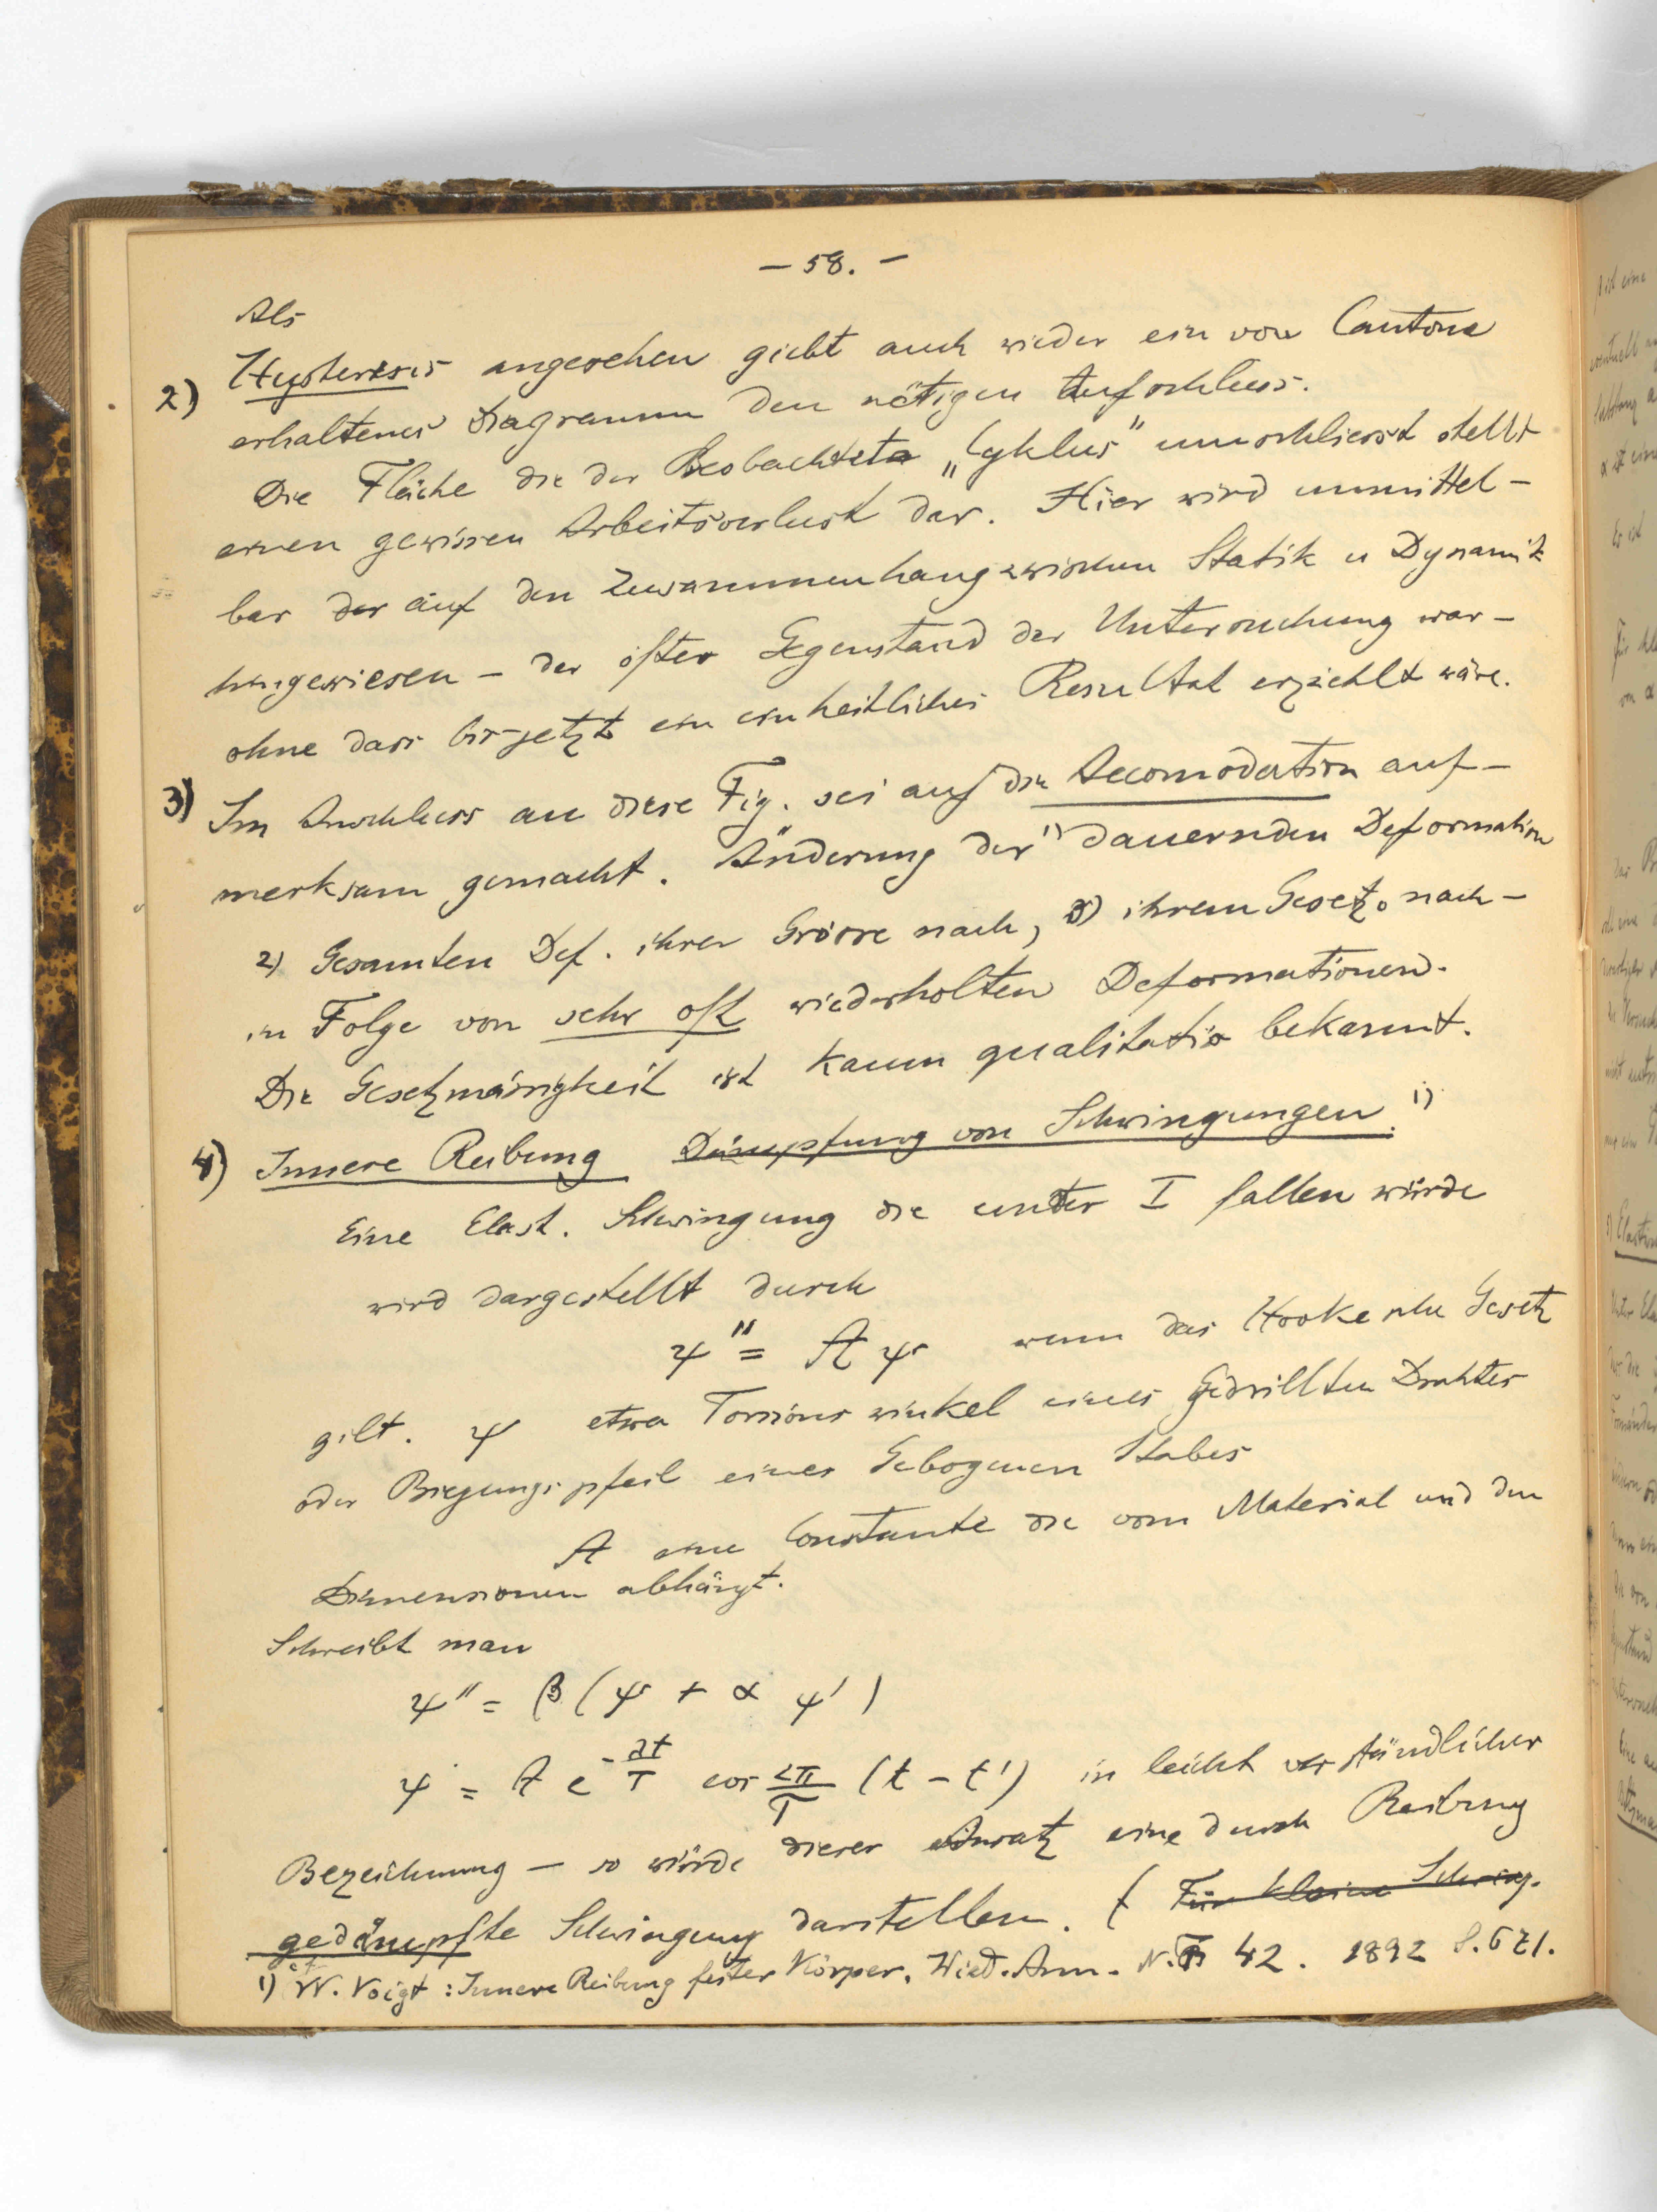 – 58. –
Als
2) Hysteresis angesehen giebt auch wieder ein von Cantone
erhaltenes Diagramm den nötigen Aufschluss.
Die Fläche die der Beobachtete „Cyklus" umschliesst stellt
einen gewissen Arbeitsverlust dar. Hier wird unmittel-
bar der auf den Zusammenhang zwischen Statik u Dynamik
hingewiesen – der öfter Gegenstand der Untersuchung war –
ohne dass bis jetzt ein einheitliches Resultat erziehlt wäre.
3) Im Anschluss an diese Fig. sei auf die Accomodation auf-
merksam gemacht. Änderung der 1) dauernden Deformation
2) Gesamten Def. ihrer Grösse nach, 3) ihrem Gesetz nach –
in Folge von sehr oft wiederholten Deformationen.
Die Gesetzmässigkeit ist kaum qualitativ bekannt.
4) Innere Reibung Dämpfung von Schwingungen. 1)
Eine Elast. Schwingung die unter I fallen würde
wird dargestellt durch
ψ'' = A ψ wenn das Hooke'sche Gesetz
gilt. ψ etwa Torsionswinkel eines Gedrillten Drahtes
oder Biegungspfeil eines Gebogenen Stabes
A eine Constante die vom Material und den
Dimensionen abhängt.
Schreibt man
ψ'' = β (ψ + α ψ')
ψ = A e^{-λt/T} cos 2π/T (t – t') in leicht verständlicher
Bezeichnung – so würde dieser Ansatz eine durch Reibung
gedämpfte Schwingung darstellen. ( Für kleine Schwing.
1) cf W. Voigt : Innere Reibung fester Körper. Wied. Ann. N.F. 42. 1892 S. 671.